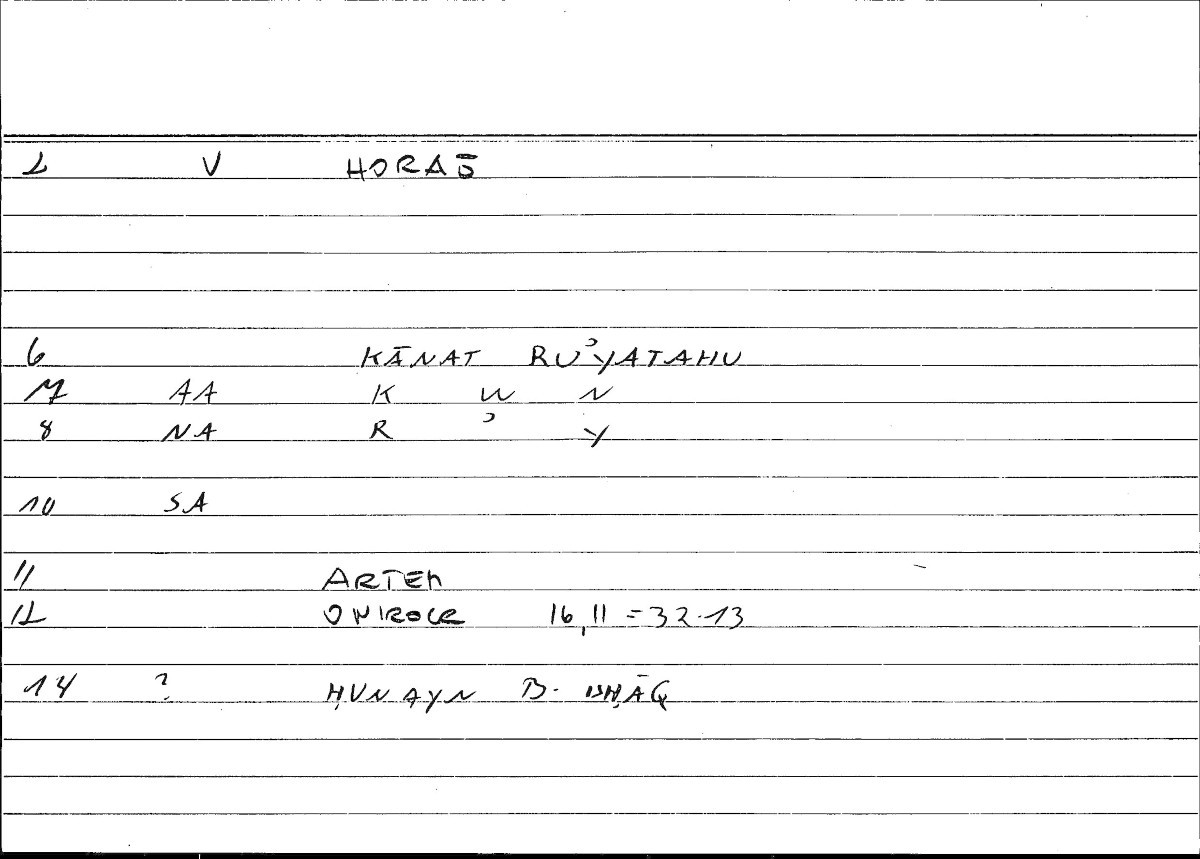 2 V HORAŌ
6 KĀNAT RUʾYATAHU
7 AA K W N
8 NA R ʾ Y
10 SA
11 ARTEM
12 ONIROCR 16,11 = 32.13
14 ? ḤUNAYN B. ISḤĀQ